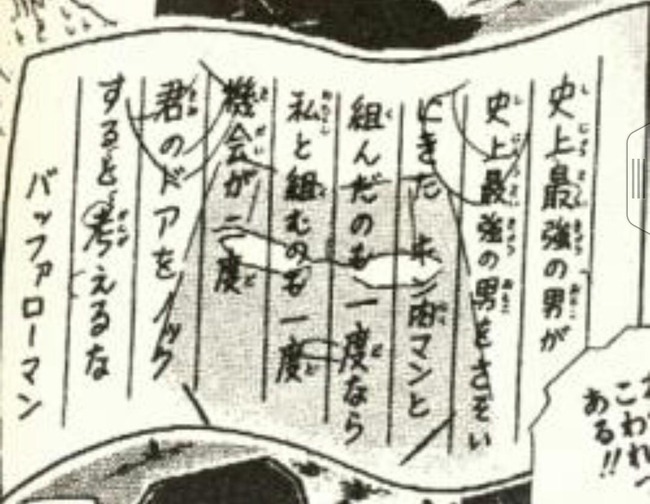 史上最強の男が
史上最強の男をさそい
にきた キン肉マンと
組んだのも一度なら
私と組むのも一度
機会が二度
君のドアをノック
すると考えるな
バッファローマン
こわれ
ある!!